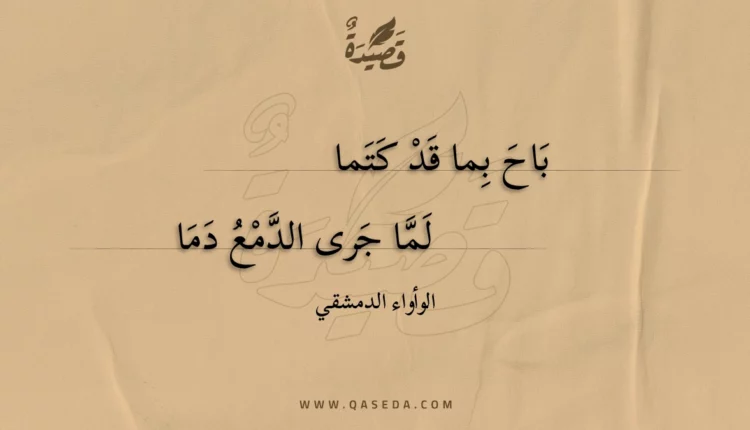 قَصِيْدَةٌ
بَاحَ بِما قَدْ كَتَما
لَمَّا جَرى الدَّمْعُ دَمَا
الوأواء الدمشقي
WWW.QASEDA.COM